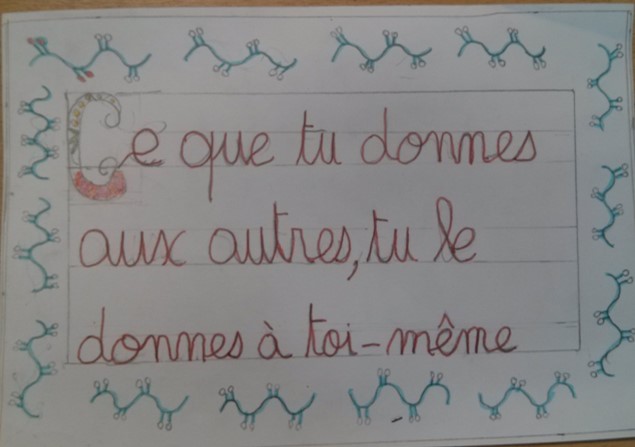 Ce que tu donnes
aux autres, tu le
donnes à toi-même